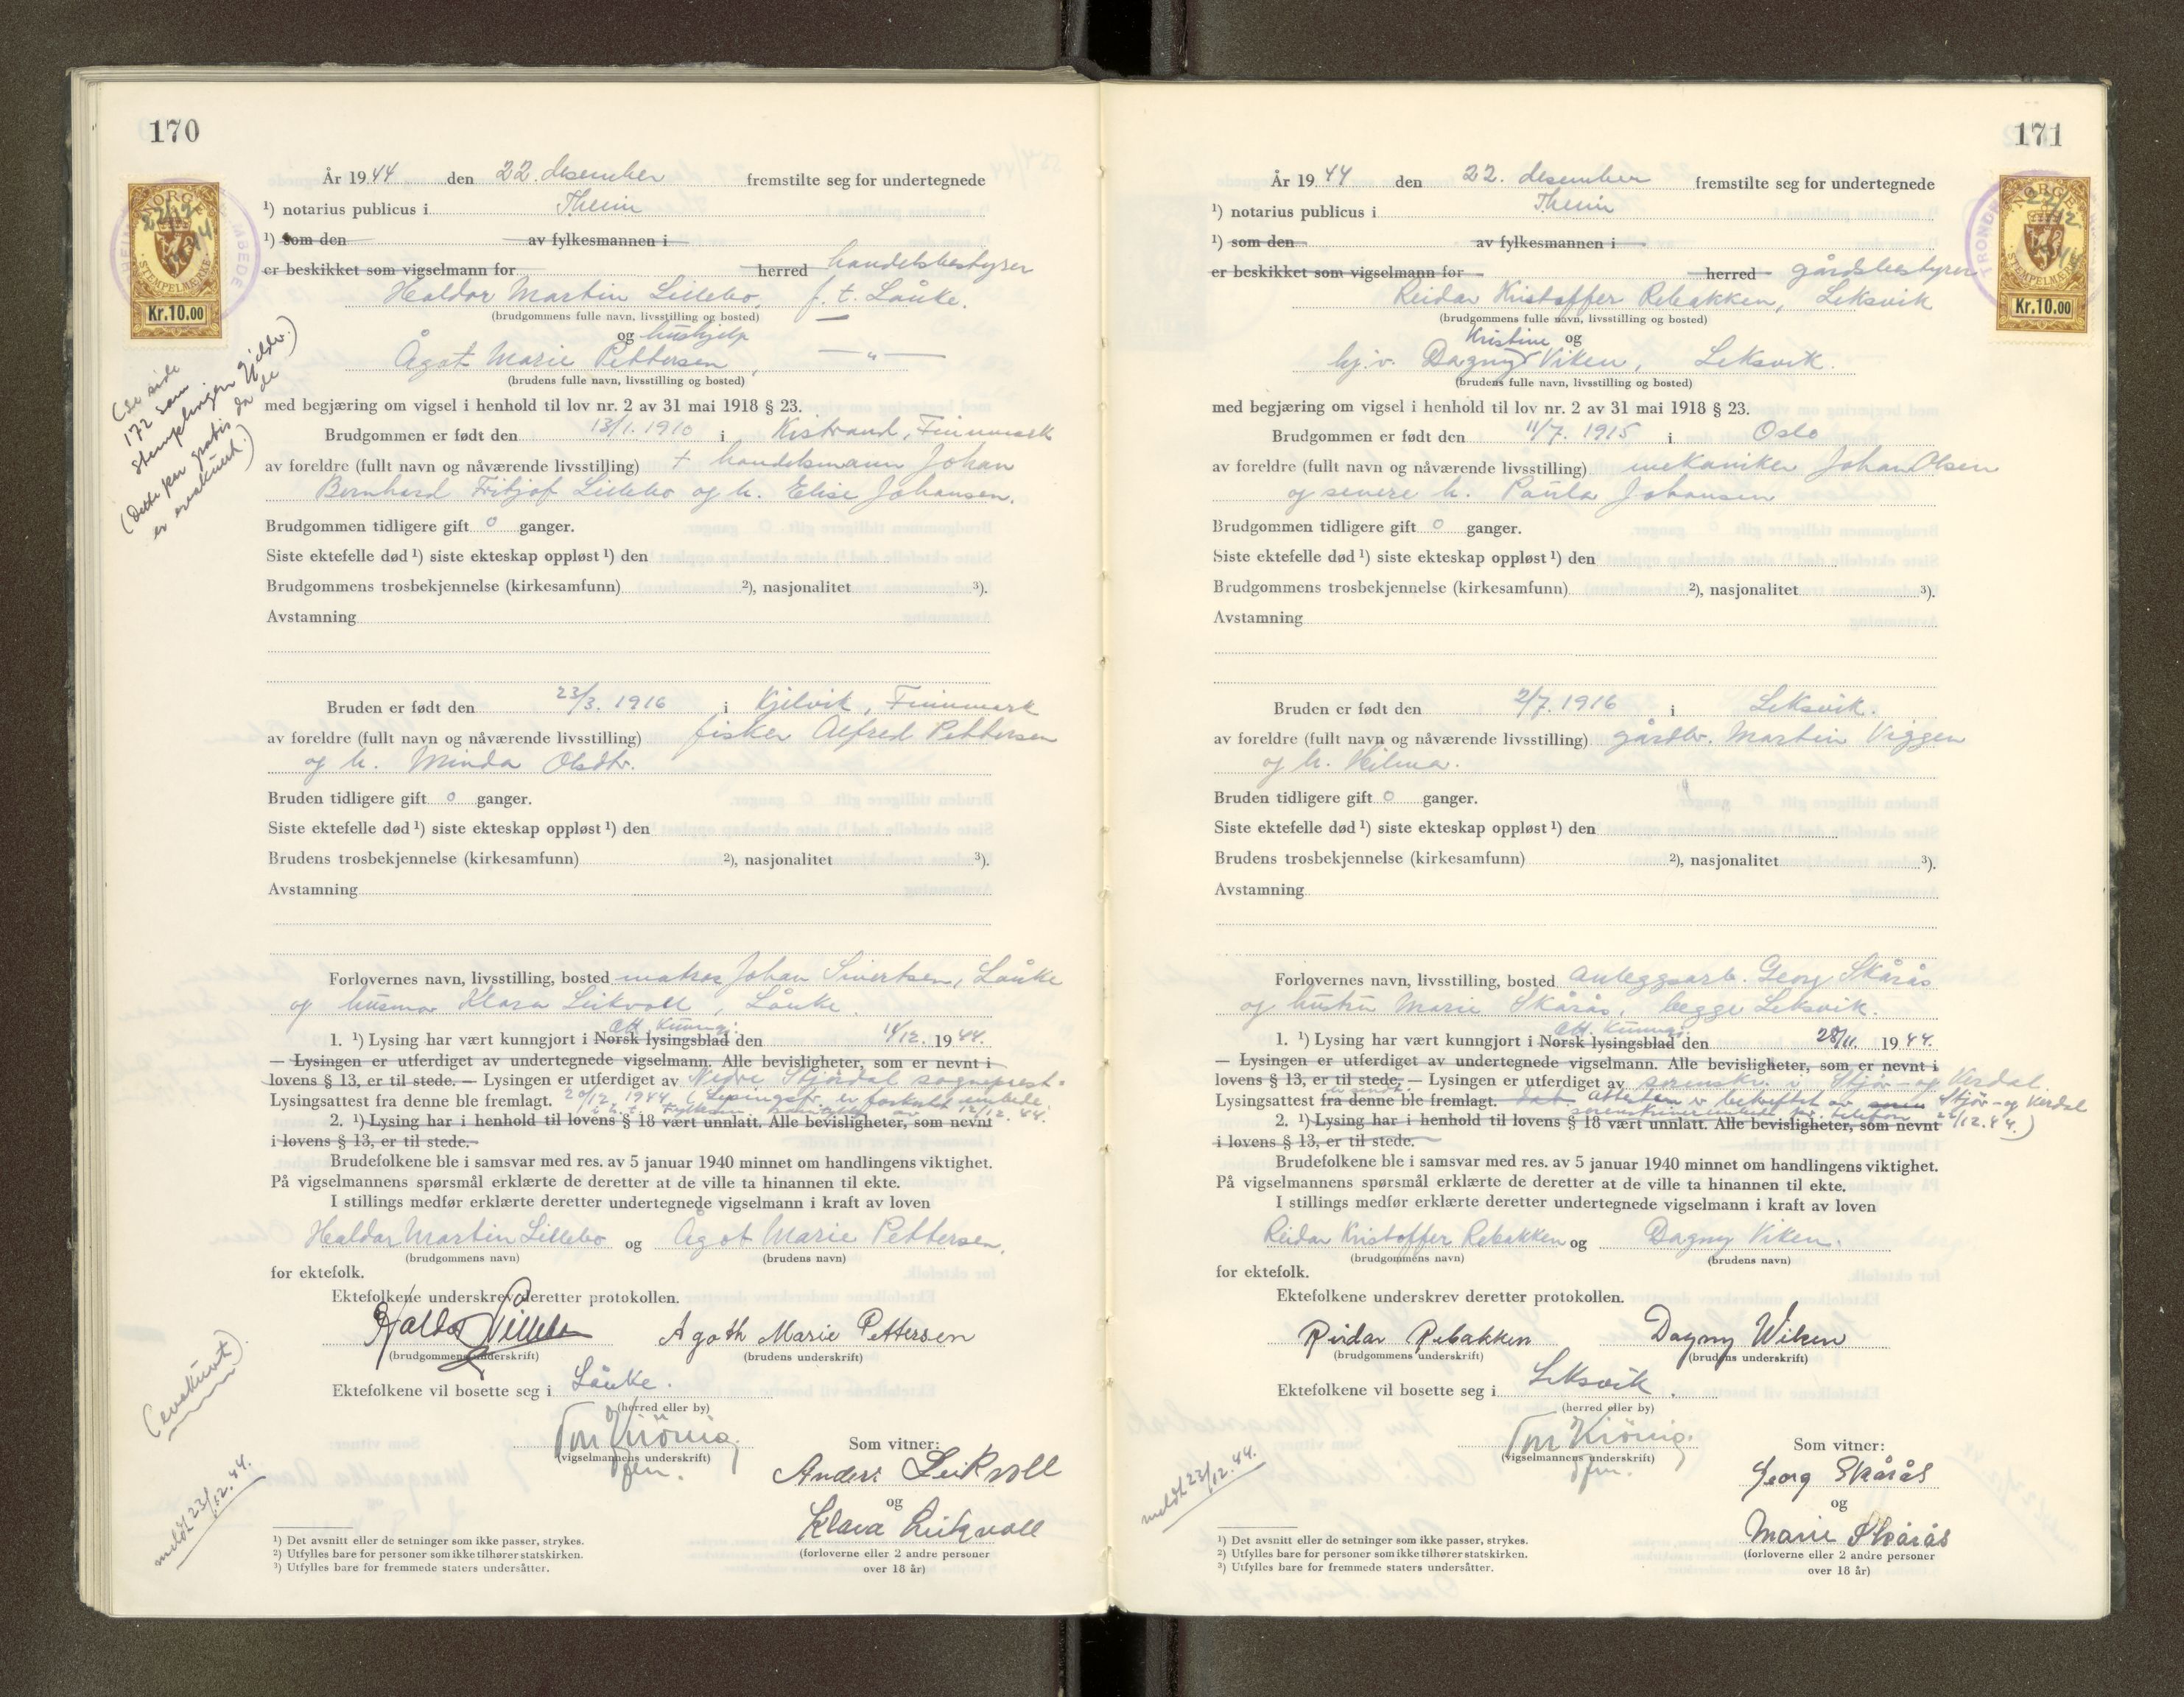 170
År 1944 den 22. desember fremstilte seg for undertegnede
¹) notarius publicus i Theim
¹) som den av fylkesmannen i
er beskikket som vigselmann for herred handelsbestyrer
Haldor Martin Lillebo f. t. Lånke.
(brudgommens fulle navn, livsstilling og bosted)
og hushjelp
Ågot Marie Pettersen, — " —
(brudens fulle navn, livsstilling og bosted)
med begjæring om vigsel i henhold til lov nr. 2 av 31 mai 1918 § 23.
Brudgommen er født den 13/1. 1910 i Kistrand, Finnmark
av foreldre (fullt navn og nåværende livsstilling) + handelsmann Johan
Bernhard Fritjof Lillebo og h. Elise Johansen.
Brudgommen tidligere gift 0 ganger.
Siste ektefelle død ¹) siste ekteskap oppløst ¹) den
Brudgommens trosbekjennelse (kirkesamfunn) ²), nasjonalitet ³).
Avstamning
Bruden er født den 23/3. 1916 i Kjelvik, Finnmark
av foreldre (fullt navn og nåværende livsstilling) fisker Alfred Pettersen
og h. Minda Olsdtr.
Bruden tidligere gift 0 ganger.
Siste ektefelle død ¹) siste ekteskap oppløst ¹) den
Brudens trosbekjennelse (kirkesamfunn) ²), nasjonalitet ³).
Avstamning
Forlovernes navn, livsstilling, bosted matros Johan Sivertsen, Lånke
og husmor Klara Leikvoll, Lånke.
Off. Kunng.
1. ¹) Lysing har vært kunngjort i Norsk lysingsblad den 14/12. 1944.
— Lysingen er utferdiget av undertegnede vigselmann. Alle bevisligheter, som er nevnt i
lovens § 13, er til stede. — Lysingen er utferdiget av Nedre Stjørdal sogneprest-
Lysingsattest fra denne ble fremlagt. 20/12. 1944 (Lysingstr. er forkortet embede.
12/12. 44.
2. ¹) Lysing har i henhold til lovens § 18 vært unnlatt. Alle bevisligheter, som nevnt
i lovens § 13, er til stede.
Brudefolkene ble i samsvar med res. av 5 januar 1940 minnet om handlingens viktighet.
På vigselmannens spørsmål erklærte de deretter at de ville ta hinannen til ekte.
I stillings medfør erklærte deretter undertegnede vigselmann i kraft av loven
Haldor Martin Lillebo og Ågot Marie Pettersen.
(brudgommens navn) (brudens navn)
for ektefolk.
Ektefolkene underskrev deretter protokollen.
Haldor Lillebo Agoth Marie Pettersen
(brudgommens underskrift) (brudens underskrift)
Ektefolkene vil bosette seg i Lånke.
(herred eller by)
(vigselmannens underskrift)
Som vitner:
Anders Leikvoll
og
Klara Leikvoll
(forloverne eller 2 andre personer
over 18 år)
¹) Det avsnitt eller de setninger som ikke passer, strykes.
²) Utfylles bare for personer som ikke tilhører statskirken.
³) Utfylles bare for fremmede staters undersåtter.
NORGE
22/12
STEMPELMERKE
Kr.10.00
(Se side
172 som
stemplingen gjelder.)
(Dette par gratis da de
er evakuert.)
(evakuert).
meldt 23/12. 44.
171
År 1944 den 22. desember fremstilte seg for undertegnede
¹) notarius publicus i Theim
¹) som den av fylkesmannen i
er beskikket som vigselmann for herred gårdsbestyrer
Reidar Kristoffer Rebakken, Leksvik
(brudgommens fulle navn, livsstilling og bosted)
Kristine og
hj.v. Dagny Viken, Leksvik.
(brudens fulle navn, livsstilling og bosted)
med begjæring om vigsel i henhold til lov nr. 2 av 31 mai 1918 § 23.
Brudgommen er født den 11/7. 1915 i Oslo
av foreldre (fullt navn og nåværende livsstilling) mekaniker Johan Olsen
og senere h. Paula Johansen
Brudgommen tidligere gift 0 ganger.
Siste ektefelle død ¹) siste ekteskap oppløst ¹) den
Brudgommens trosbekjennelse (kirkesamfunn) ²), nasjonalitet ³).
Avstamning
Bruden er født den 2/7. 1916 i Leksvik.
av foreldre (fullt navn og nåværende livsstilling) gårdbr. Martin Viggen
og h. Hilma.
Bruden tidligere gift 0 ganger.
Siste ektefelle død ¹) siste ekteskap oppløst ¹) den
Brudens trosbekjennelse (kirkesamfunn) ²), nasjonalitet ³).
Avstamning
Forlovernes navn, livsstilling, bosted anleggsarb. Georg Skårås
og hustru Marie Skårås, begge Leksvik.
Off. Kunng.
1. ¹) Lysing har vært kunngjort i Norsk lysingsblad den 28/11. 1944.
— Lysingen er utferdiget av undertegnede vigselmann. Alle bevisligheter, som er nevnt i
lovens § 13, er til stede. — Lysingen er utferdiget av sorenskr. i Stjør- og Verdal.
Lysingsattest fra denne ble fremlagt. attesten er bekreftet av Stjør- og Verdal
sorenskriverembede pr. telefon 22/12.44.)
2. ¹) Lysing har i henhold til lovens § 18 vært unnlatt. Alle bevisligheter, som nevnt
i lovens § 13, er til stede.
Brudefolkene ble i samsvar med res. av 5 januar 1940 minnet om handlingens viktighet.
På vigselmannens spørsmål erklærte de deretter at de ville ta hinannen til ekte.
I stillings medfør erklærte deretter undertegnede vigselmann i kraft av loven
Reidar Kristoffer Rebakken og Dagny Viken.
(brudgommens navn) (brudens navn)
for ektefolk.
Ektefolkene underskrev deretter protokollen.
Reidar Rebakken Dagny Wiken
(brudgommens underskrift) (brudens underskrift)
Ektefolkene vil bosette seg i Leksvik.
(herred eller by)
(vigselmannens underskrift)
Som vitner:
Georg Skårås
og
Marie Skårås
(forloverne eller 2 andre personer
over 18 år)
¹) Det avsnitt eller de setninger som ikke passer, strykes.
²) Utfylles bare for personer som ikke tilhører statskirken.
³) Utfylles bare for fremmede staters undersåtter.
NORGE
22/12
1944
STEMPELMERKE
Kr.10.00
meldt 23/12. 44.